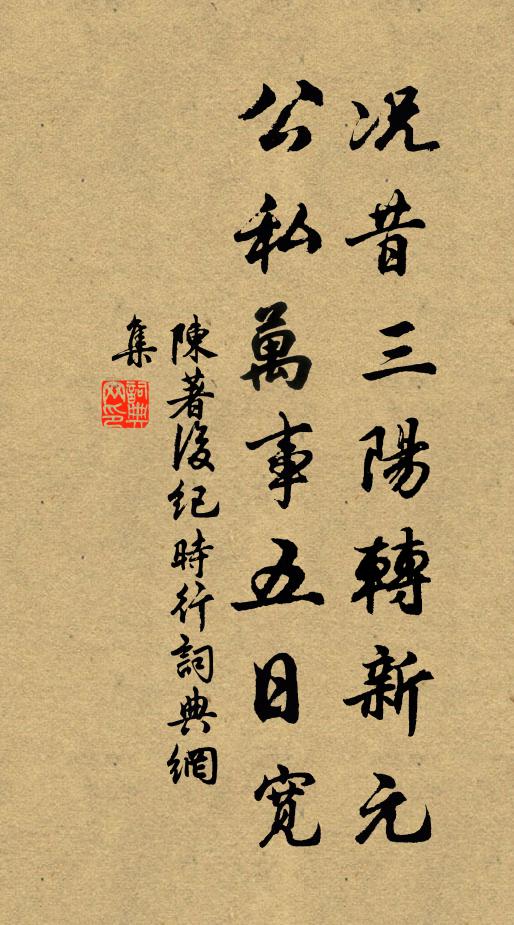 况昔三陽轉新元
公私萬事五日寬
陳著後紀時行詞典網
集
詞典網印